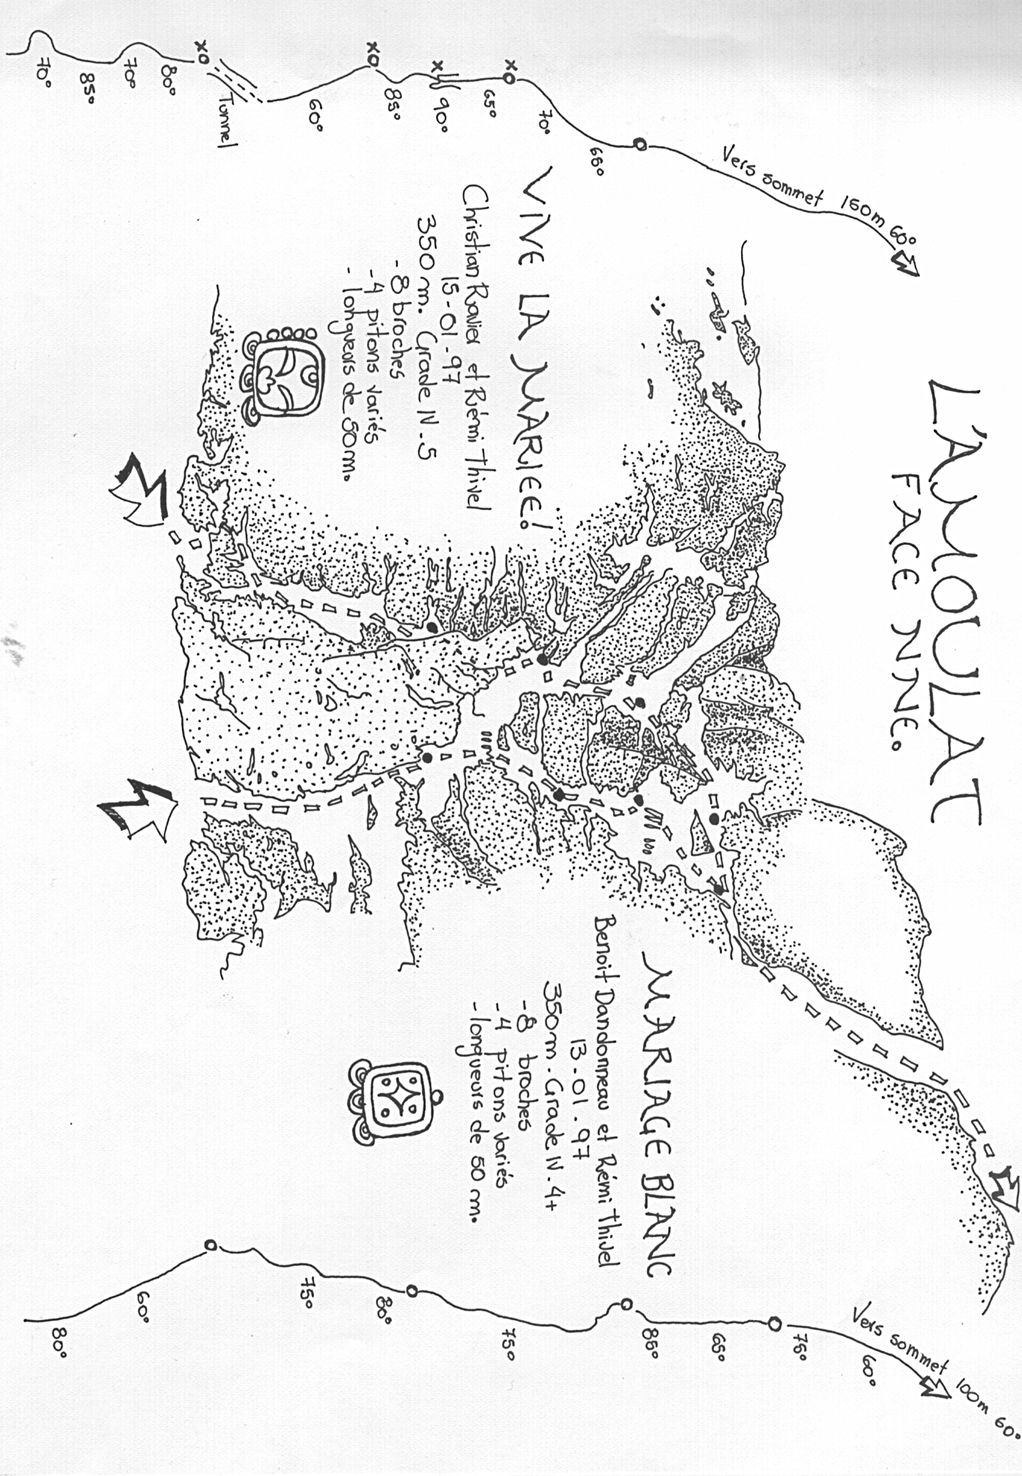 L'AMOULAT
FACE NNE.
Vers sommet 150m 60°
65°
70°
XO
65°
90°
X
85°
XO
60°
Tunnel
XO
80°
70°
85°
70°
VIVE LA MARIEE!
Christian Ravier et Rémi Thivel
15-01-97
350 m. Grade IV.5
-8 broches
-4 pitons variés
-longueurs de 50m.
MARIAGE BLANC
Benoit Dandonneau et Rémi Thivel
13-01-97
350m-Grade IV.4+
-8 broches
-4 pitons variés
-longueurs de 50 m.
Vers sommet 100m 60°
60°
75°
65°
85°
75°
80°
75°
60°
80°